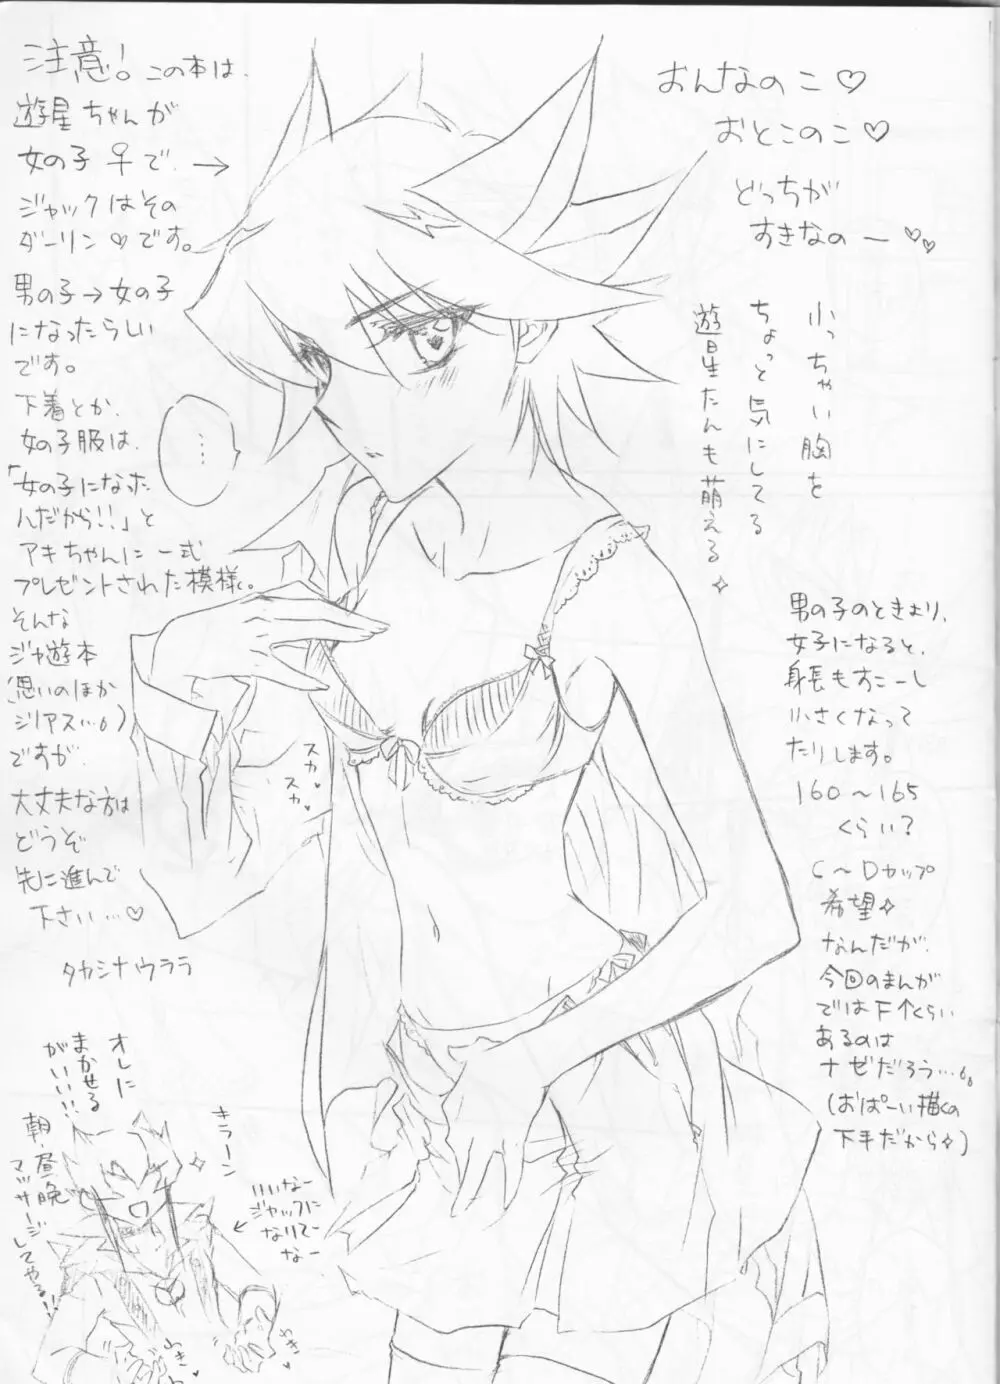 注意! この本は、
遊星ちゃんが
女の子♀で、→
ジャックはその
ダーリン♡です。
男の子→女の子
になったらしい
です。
下着とか、
女の子服は、
「女の子になった
んだから!!」と
アキちゃんに一式
プレゼントされた模様。
そんな
ジャ遊本
(思いのほか
シリアス…)
ですが、
大丈夫な方は
どうぞ
先に進んで
下さい…♡
タカシナウララ
おんなのこ♡
おとこのこ♡
どっちが
すきなのー♡♡
小っちゃい胸を
ちょっと気にしてる
遊星たんも萌える✧
…
スカ
スカ♥
男の子のときより、
女子になると、
身長もすこーし
小さくなって
たりします。
160〜165
くらい?
C〜Dカップ
希望✧
なんだが、
今回のまんが
では下↑くらい
あるのは
ナゼだろう…。
(おぱーい描くの
下手だから✧)
オレに
まかせる
がいい!!
朝、昼、晩
マッサージ
してやる!!
キラーン
いいなー
ジャックに
なりてー
なー